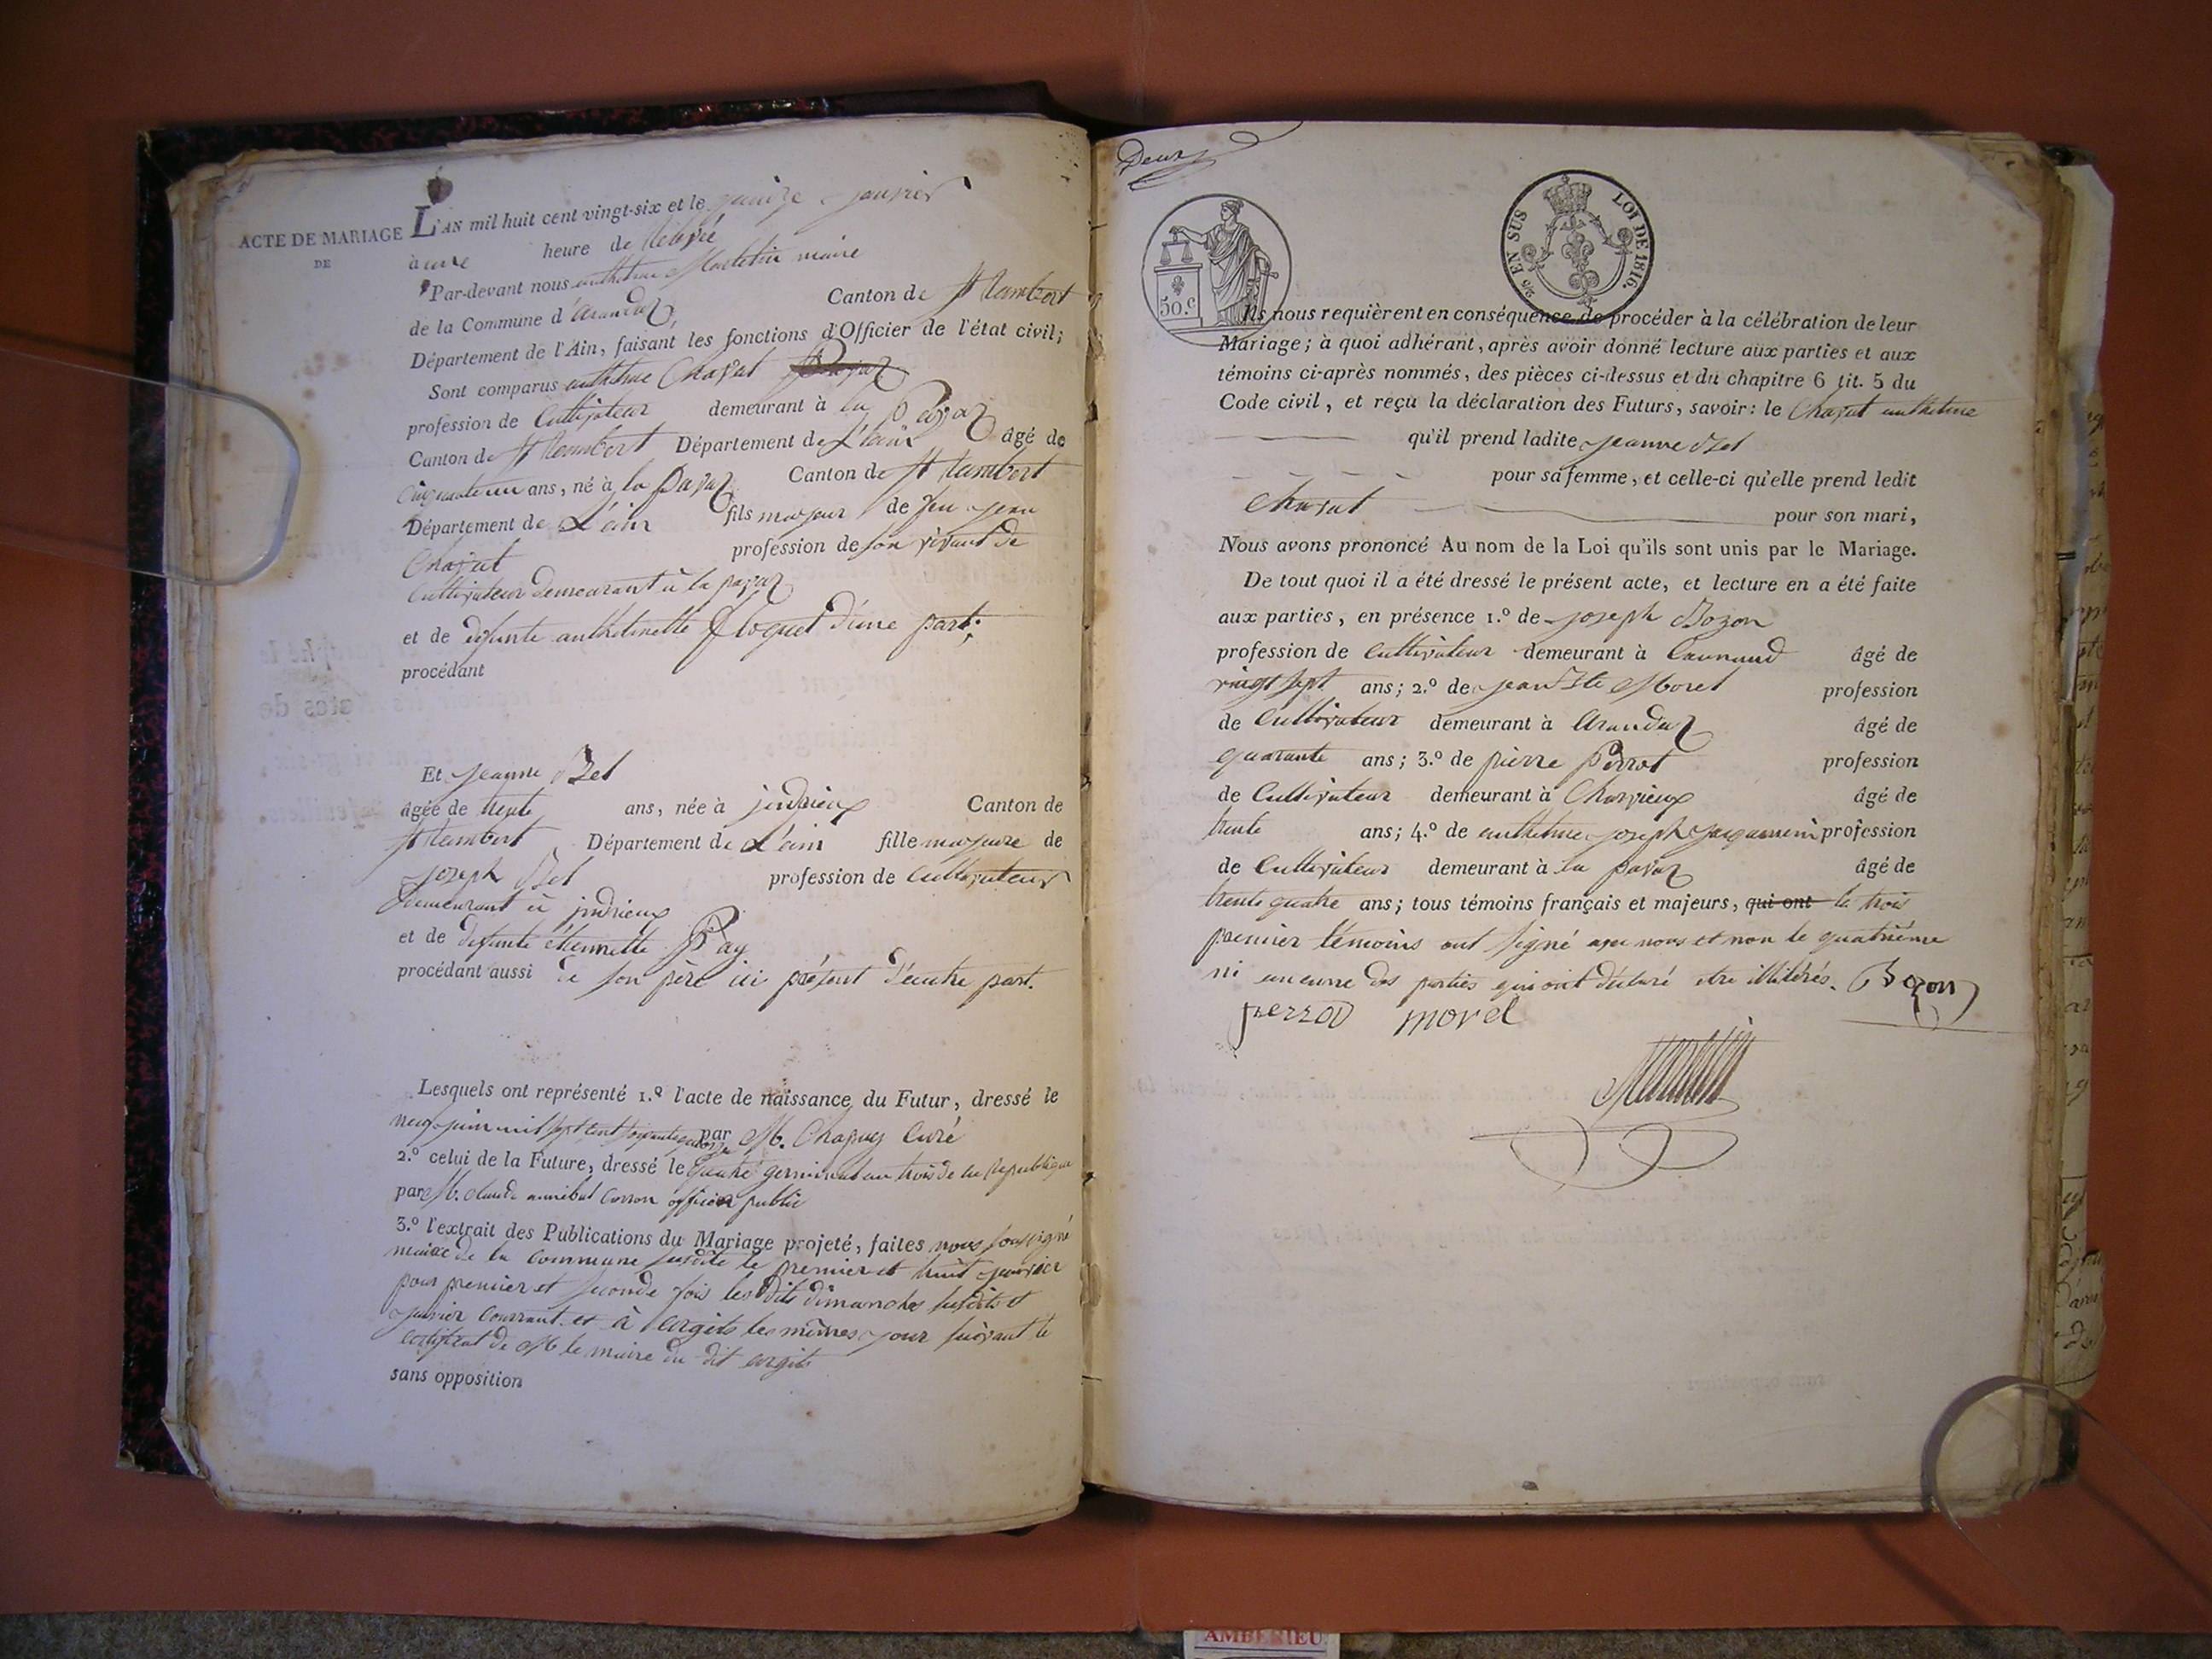 ACTE DE MARIAGE
DE
L'AN mil huit cent vingt-six et le quinze janvier
à une heure de relevée
Par-devant nous anthelme Martin maire
de la Commune d'arandaz Canton de St Rambert
Département de l'Ain, faisant les fonctions d'Officier de l'état civil;
Sont comparus anthelme Chavat
profession de Cultivateur demeurant à la Pavaz
Canton de St Rambert Département de L'ain âgé de
Cinquante un ans, né à la Pavaz Canton de St Rambert
Département de L'ain fils majeur de feu jean
Chavat profession de son vivant de
Cultivateur demeurant à la pavaz
et de defunte anthelmette floquet d'une part;
procédant
Et jeanne
âgée de trente ans, née à indrieux Canton de
St Rambert Département de L'ain fille majeure de
joseph profession de Cultivateur
demeurant à indrieux
et de defunte étiennette Pay
procédant aussi de son père ici présent d'autre part.
Lesquels ont représenté 1.º l'acte de naissance du Futur, dressé le
neuf juin mil sept cent soixante quatorze par M. Chapuy Curé
2.º celui de la Future, dressé le quatre germinal an trois de la Republique
par M. Claude annibal Corron officier public
3.º l'extrait des Publications du Mariage projeté, faites nous soussigné
maire de la Commune susdite le premier et huit janvier
pour premier et seconde fois les dits dimanches susdits et
janvier Courrant et à argits les mêmes jour suivant le
certificat de M le maire du dit argits
sans opposition
Deux
50.c
25 EN SUS
LOI DE 1816.
Ils nous requièrent en conséquence de procéder à la célébration de leur
Mariage; à quoi adhérant, après avoir donné lecture aux parties et aux
témoins ci-après nommés, des pièces ci-dessus et du chapitre 6 tit. 5 du
Code civil, et reçu la déclaration des Futurs, savoir: le Chavat anthelme
qu'il prend ladite jeanne
pour sa femme, et celle-ci qu'elle prend ledit
Chavat pour son mari,
Nous avons prononcé Au nom de la Loi qu'ils sont unis par le Mariage.
De tout quoi il a été dressé le présent acte, et lecture en a été faite
aux parties, en présence 1.º de joseph Bozon
profession de Cultivateur demeurant à âgé de
vingt sept ans; 2.º de jean Bte Morel profession
de Cultivateur demeurant à arandaz âgé de
quarante ans; 3.º de pierre Perrot profession
de Cultivateur demeurant à Charvieux âgé de
trente ans; 4.º de anthelme joseph jacquemin profession
de Cultivateur demeurant à la pavaz âgé de
trente quatre ans; tous témoins français et majeurs, qui ont les trois
premier témoins ont signé avec nous et non le quatrième
ni aucune des parties qui ont déclaré etre illitérés. Bozon
perrod morel
Martin
AMBERIEU